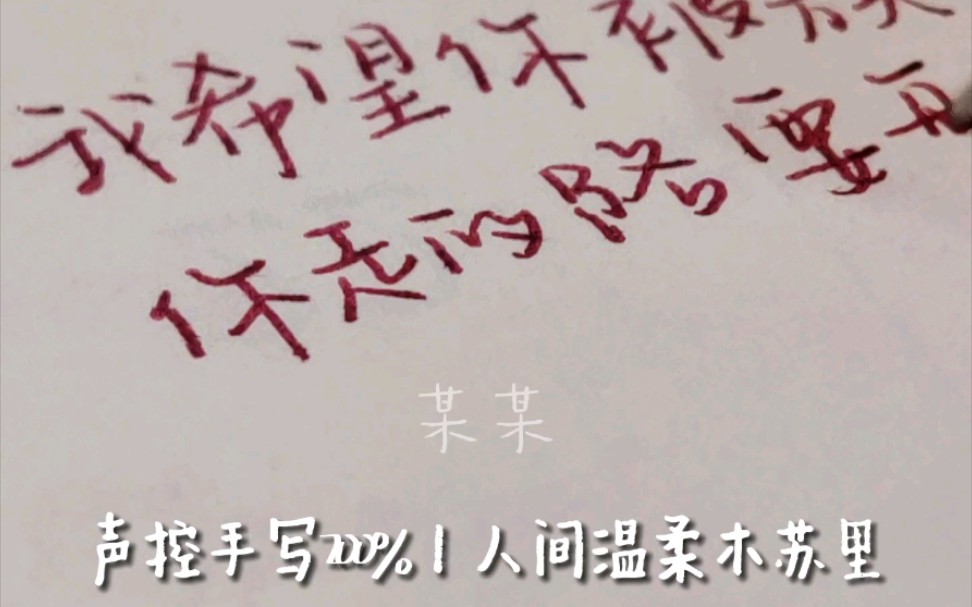 我希望你不被
你走的路要
某某
声控手写200%|人间温柔木苏里